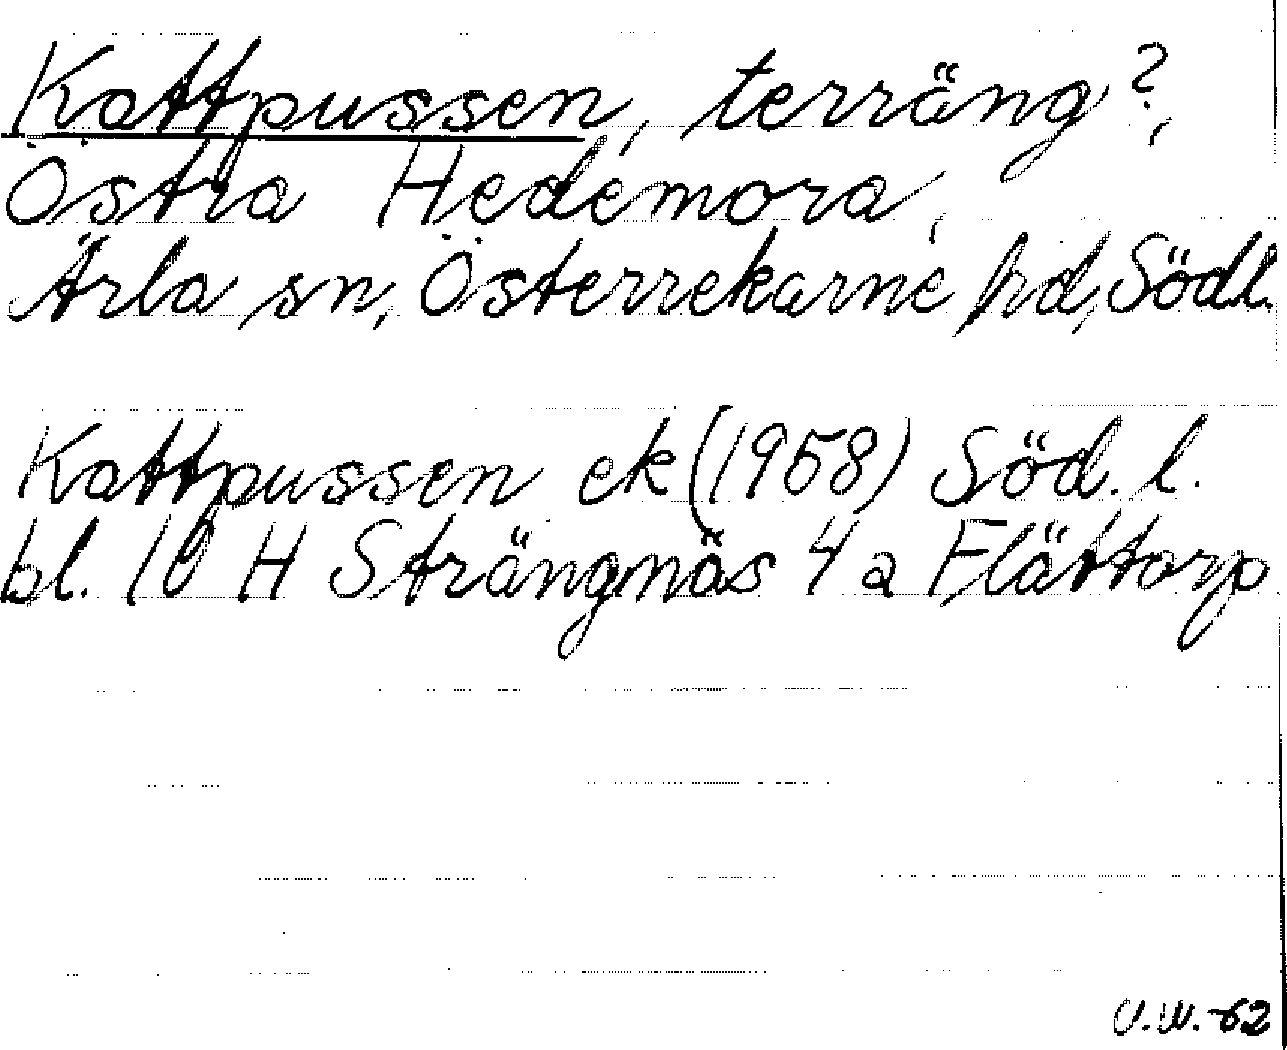 Kattpussen, terräng?,
Östra Hedemora,
Ärla sn, Österrekarne hd, Södl.
Kattpussen ek (1958) Söd. l.
bl. 10 H Strängnäs 4 a Flättorp
U.W. -62